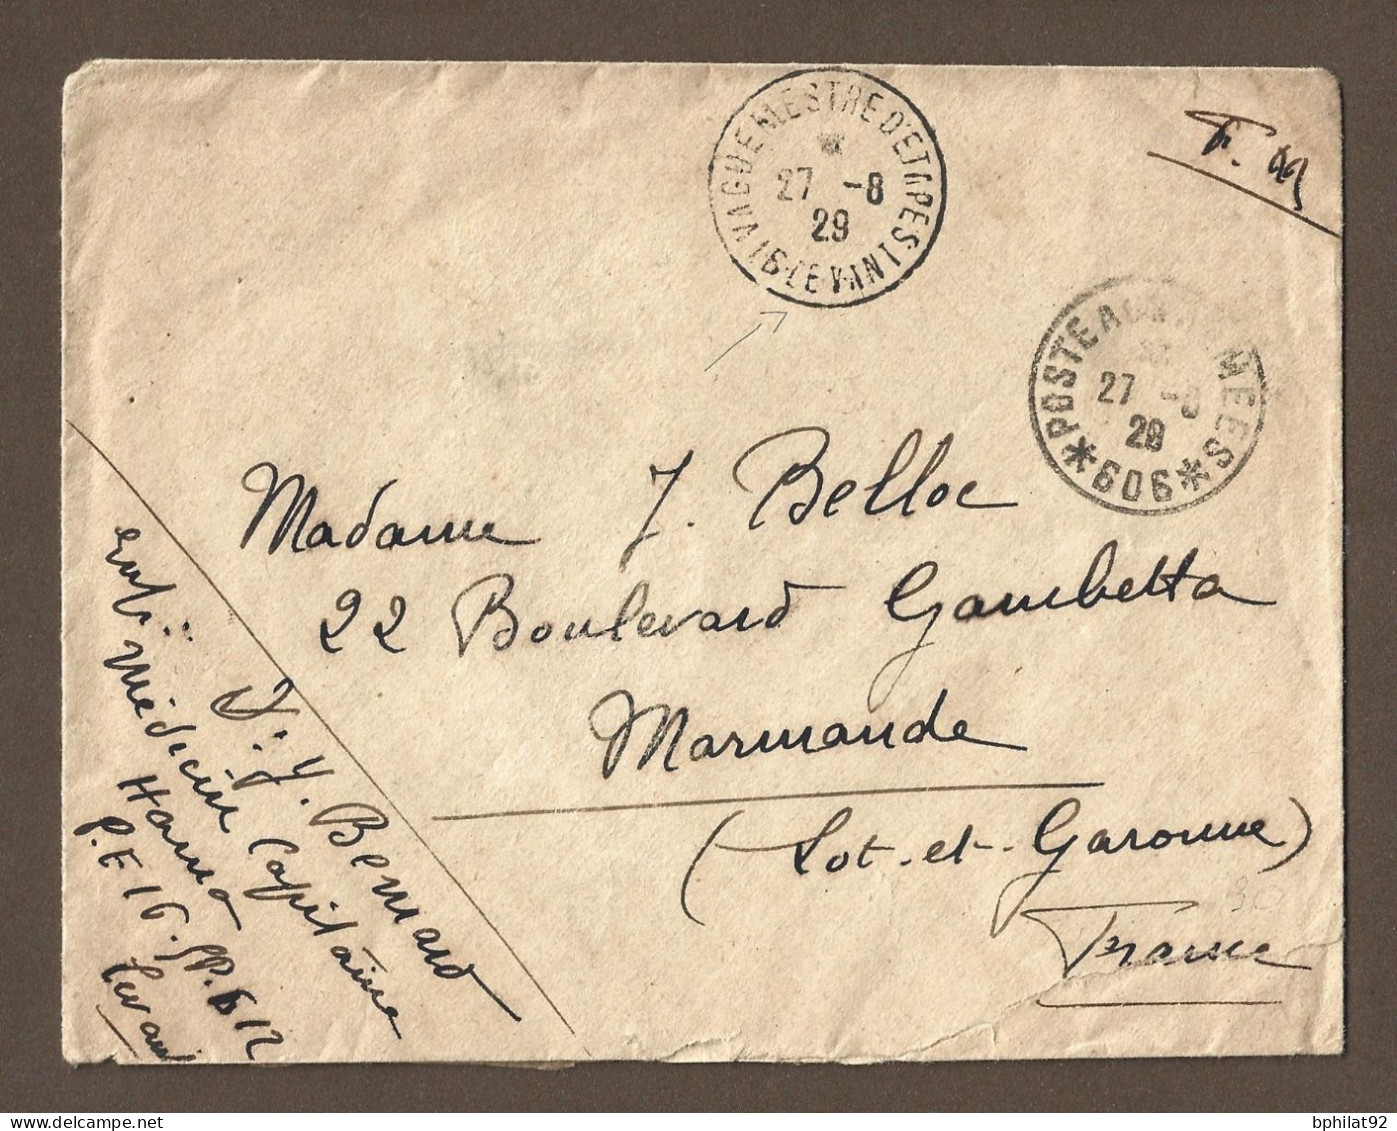 VAGUEMESTRE D'ETAPES
27 -8
29
LEVANT
F. M
POSTE AUX ARMEES
27 -8
29
*606*
Madame J. Belloc
22 Boulevard Gambetta
Marmande
(Lot-et-Garonne)
France
Dr: Y. Bernard
Médecin Capitaine
P.E 16. SP. 612
Levant
bphilat92